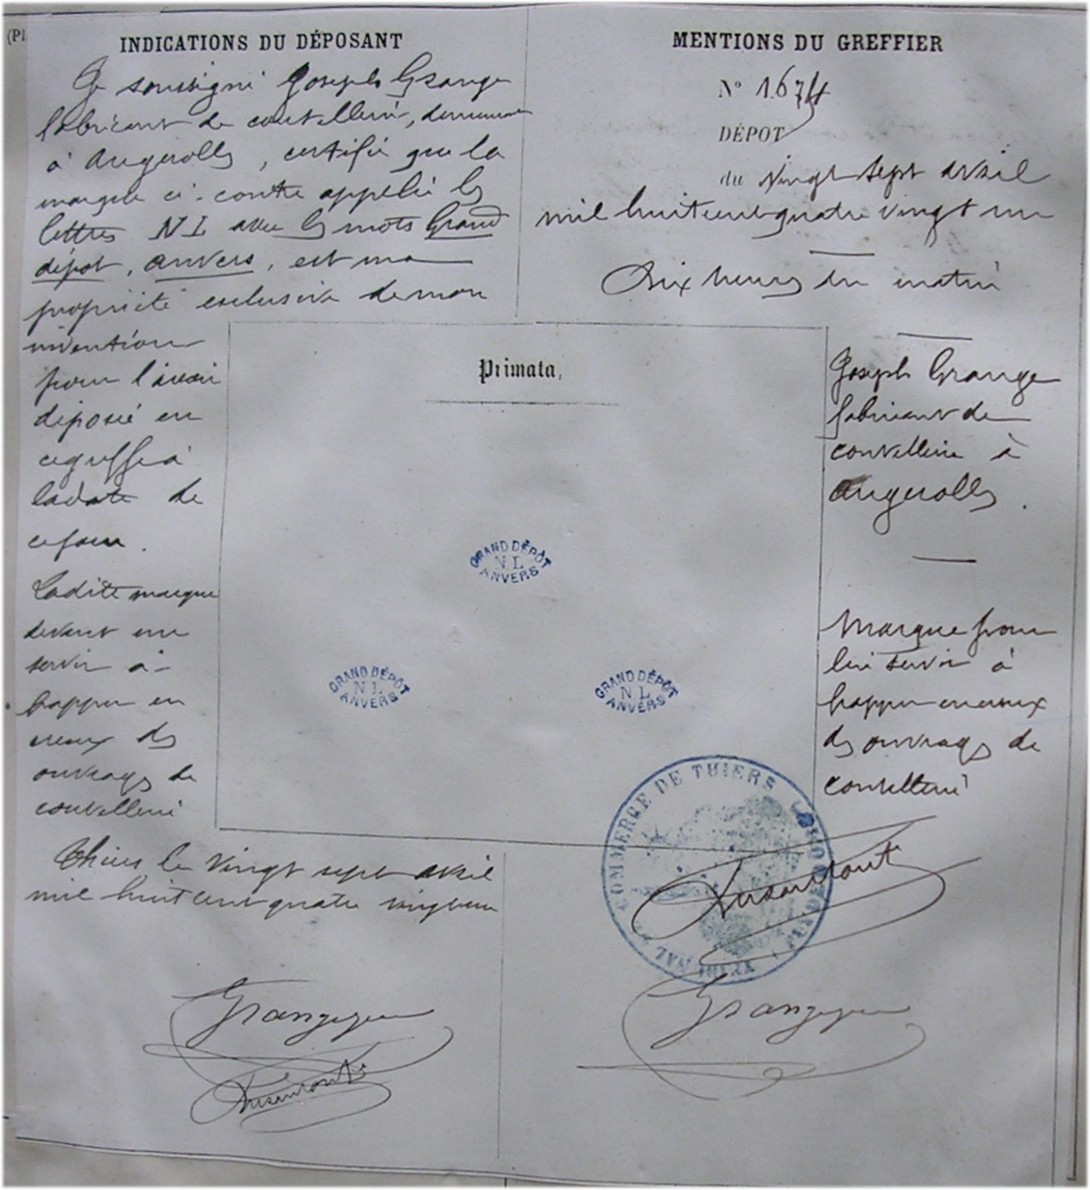 (Pi
INDICATIONS DU DÉPOSANT
Je soussigné Joseph Grange
fabricant de coutellerie, demeurant
à Augerolles, certifie que la
marque ci-contre appelée les
lettres NL avec les mots Grand
dépôt, Anvers, est ma
propriété exclusive de mon
invention
pour l'avoir
déposée en
ce greffe à
la date de
ce jour.
Ladite marque
devant me
servir à
frapper en
creux des
ouvrages de
coutellerie
Thiers le vingt sept avril
mil huit cent quatre vingt un
Grange
MENTIONS DU GREFFIER
N° 1674
DÉPOT
du vingt sept avril
mil huit cent quatre vingt un
Dix heures du matin
Joseph Grange
fabricant de
coutellerie à
Augerolles.
Marque pour
lui servir à
frapper en creux
des ouvrages de
coutellerie
Primata,
GRAND DÉPÔT
N L
ANVERS
GRAND DÉPÔT
N L
ANVERS
GRAND DÉPÔT
N L
ANVERS
TRIBUNAL DE COMMERCE DE THIERS
Grange